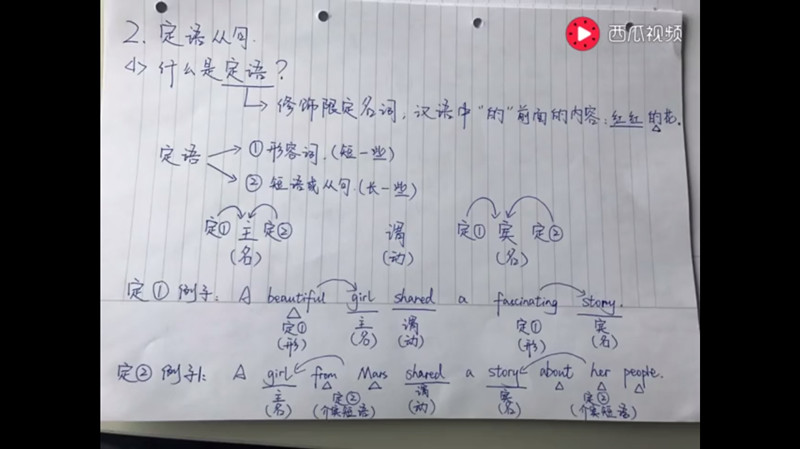 西瓜视频
2. 定语从句.
<1> 什么是定语?
修饰限定名词, 汉语中"的"前面的内容: 红红的花.
定语 ① 形容词. (短一些)
② 短语或从句. (长一些)
定① 主 定② 谓 定① 宾 定②
(名) (动) (名)
定① 例子: A beautiful girl shared a fascinating story.
定① 主 谓 定① 宾
(形) (名) (动) (形) (名)
定② 例子1: A girl from Mars shared a story about her people.
主 定② 谓 宾 定②
(名) (介宾短语) (动) (名) (介宾短语)